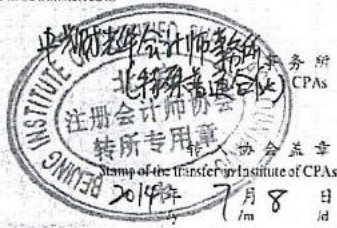 中兴财光华会计师事务所
事务所
(特殊普通合伙)
CPAs
BEIJING INSTITUTE OF CERTIFIED
北
注册会计师协会
转所专用章
转入协会盖章
Stamp of the transfer-in Institute of CPAs
2014年 7月 8日
/y /m /d